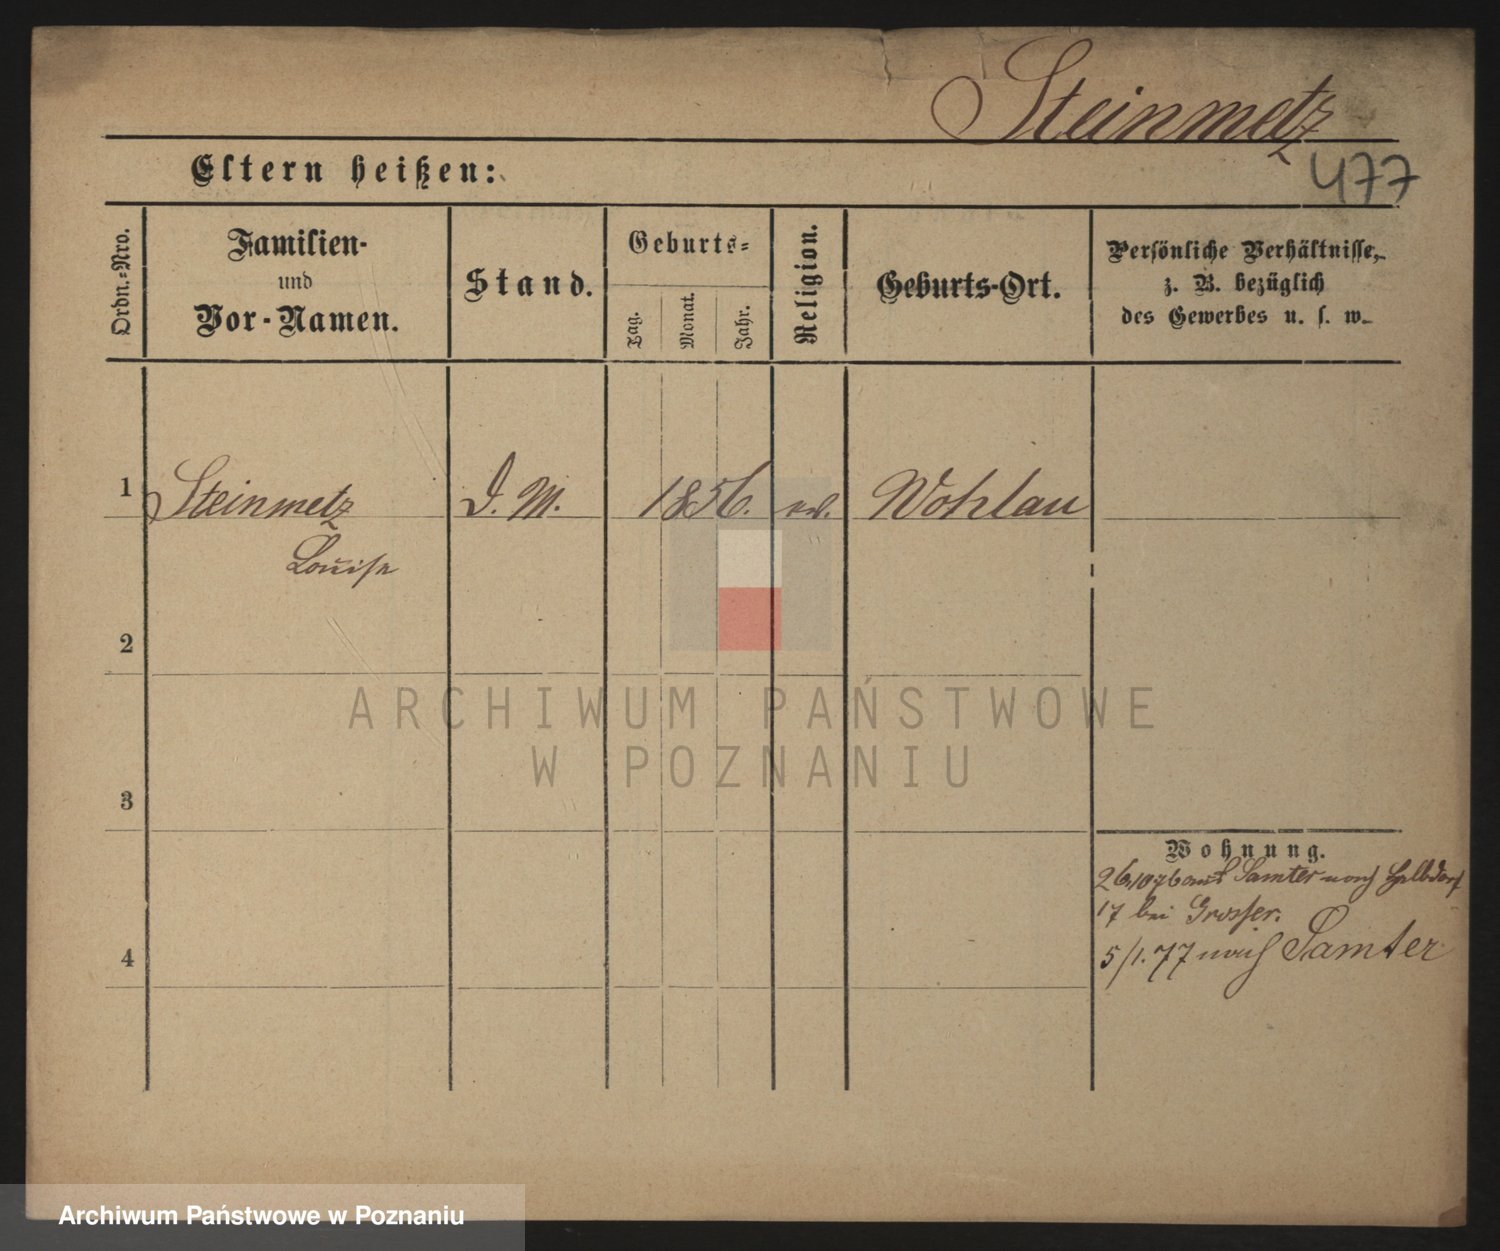 Steinmetz
477
Eltern heißen:
Ordn.-Nro.
Familien-
und
Vor-Namen.
Stand.
Geburts-
Tag.
Monat.
Jahr.
Religion.
Geburts-Ort.
Persönliche Verhältnisse,
z. B. bezüglich
des Gewerbes u. s. w.
1 Steinmetz D. M. 1856. ev. Wohlau
Louise
2
3
4
Wohnung.
26/10 76 aus Samter nach
17 bei Grosser.
5/1. 77 nach Samter
ARCHIWUM PAŃSTWOWE
W POZNANIU
Archiwum Państwowe w Poznaniu